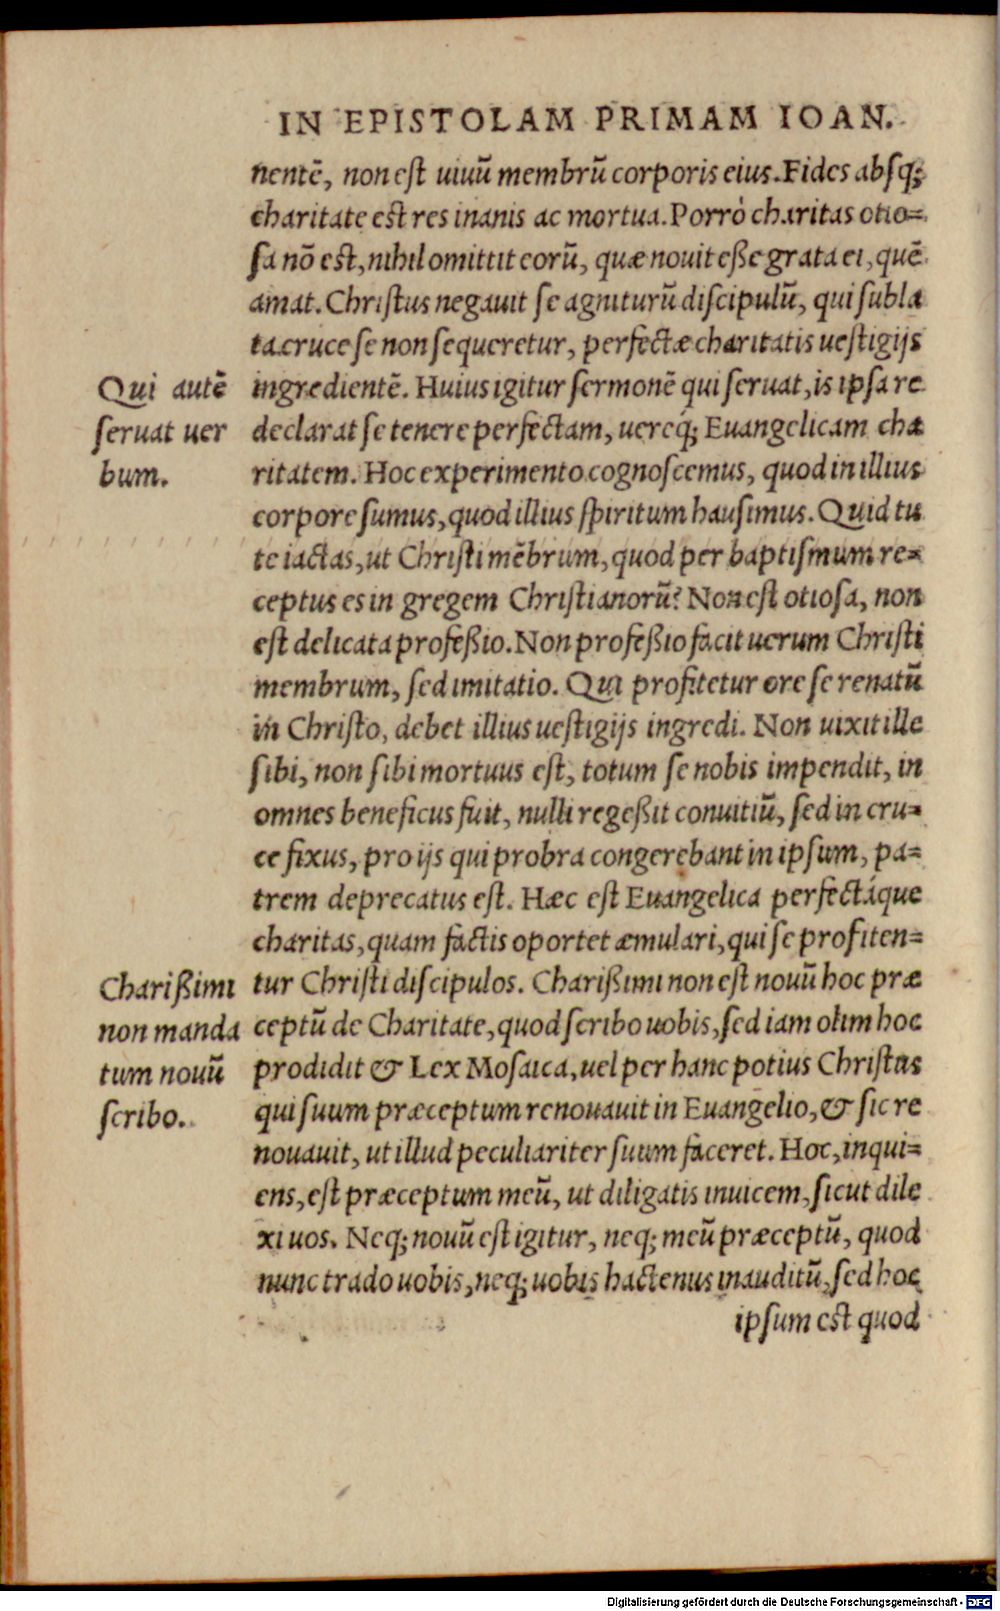 IN EPISTOLAM PRIMAM IOAN.
nentē, non est uiuū membrū corporis eius. Fides absq;
charitate est res inanis ac mortua. Porrò charitas otio=
sa nō est, nihil omittit eorū, quæ nouit eße grata ei, quē
amat. Christus negauit se agniturū discipulū, qui subla
ta cruce se non sequeretur, perfectæ charitatis uestigijs
Qui autē
seruat uer
bum.
ingredientē. Huius igitur sermonē qui seruat, is ipsa re
declarat se tenere perfectam, uereq́; Euangelicam cha
ritatem. Hoc experimento cognoscemus, quod in illius
corpore sumus, quod illius spiritum hausimus. Quid tu
te iactas, ut Christi mēbrum, quod per baptismum re=
ceptus es in gregem Christianorū? Non est otiosa, non
est delicata profeßio. Non profeßio facit uerum Christi
membrum, sed imitatio. Qui profitetur ore se renatū
in Christo, debet illius uestigijs ingredi. Non uixit ille
sibi, non sibi mortuus est, totum se nobis impendit, in
omnes beneficus fuit, nulli regeßit conuitiū, sed in cru=
ce fixus, pro ijs qui probra congerebant in ipsum, pa=
trem deprecatus est. Hæc est Euangelica perfectáque
charitas, quam factis oportet æmulari, qui se profiten=
Charißimi
non manda
tum nouū
scribo.
tur Christi discipulos. Charißimi non est nouū hoc præ
ceptū de Charitate, quod scribo uobis, sed iam olim hoc
prodidit & Lex Mosaica, uel per hanc potius Christus
qui suum præceptum renouauit in Euangelio, & sic re
nouauit, ut illud peculiariter suum faceret. Hoc, inqui=
ens, est præceptum meū, ut diligatis inuicem, sicut dile
xi uos. Neq; nouū est igitur, neq; meū præceptū, quod
nunc trado uobis, neq; uobis hactenus inauditū, sed hoc
ipsum est quod
Digitalisierung gefördert durch die Deutsche Forschungsgemeinschaft - DFG